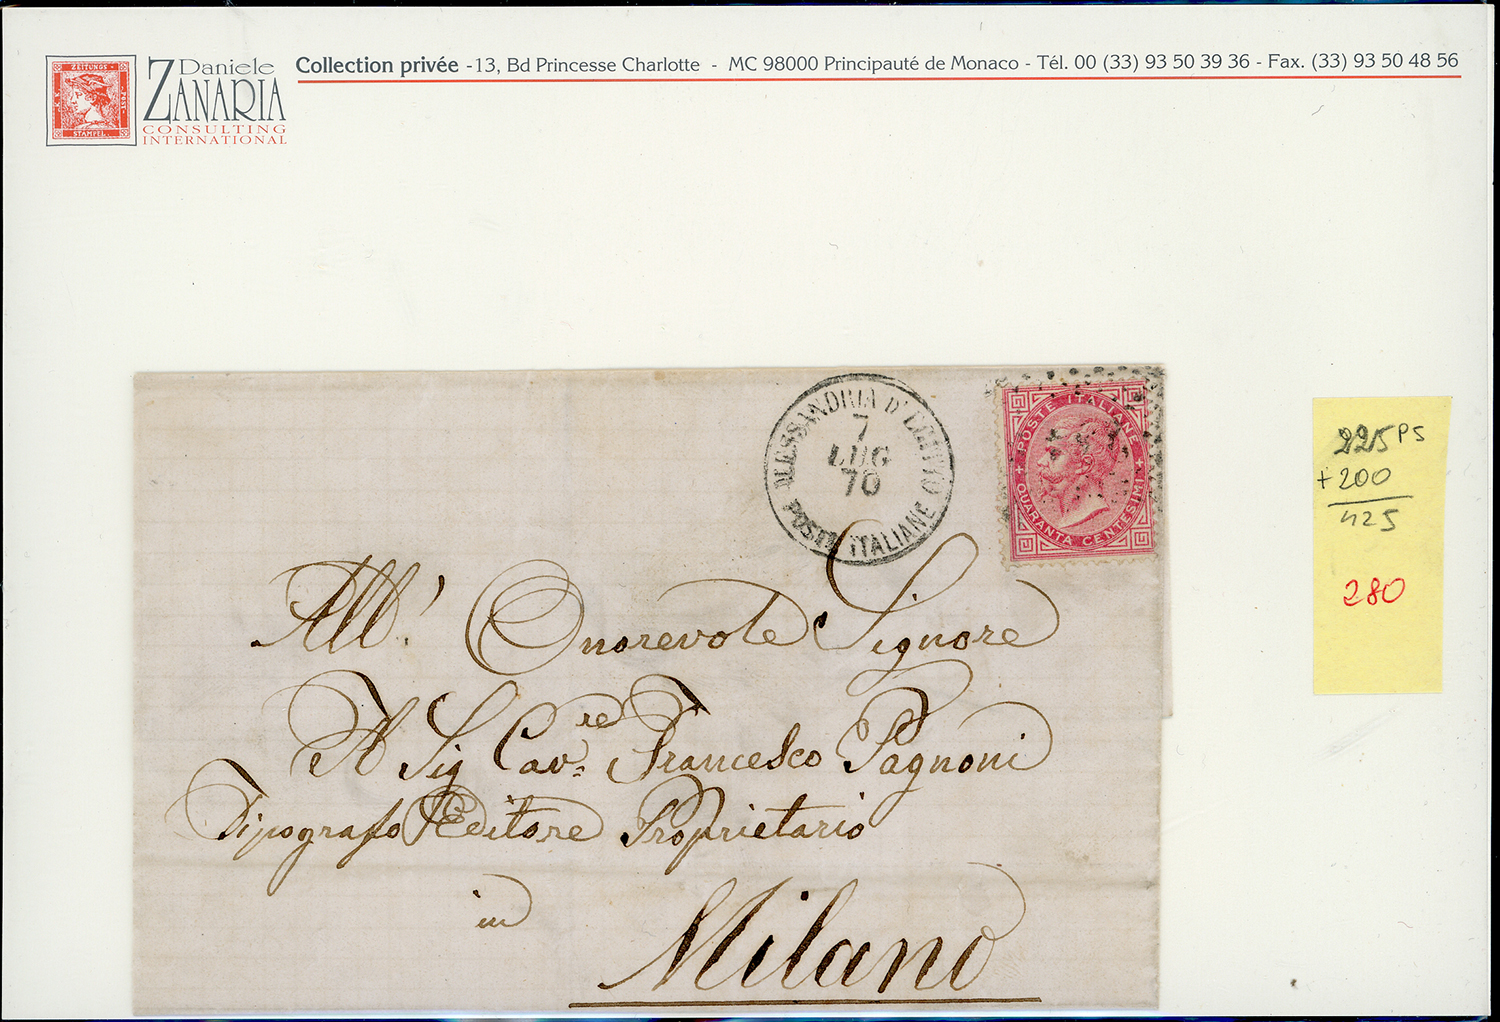 ZEITUNGS
POST
STAMPEL
Daniele
ZANARIA
CONSULTING
INTERNATIONAL
Collection privée -13, Bd Princesse Charlotte - MC 98000 Principauté de Monaco - Tél. 00 (33) 93 50 39 36 - Fax. (33) 93 50 48 56
ALESSANDRIA D'EGITTO
7
LUG
70
POSTE ITALIANE
POSTE ITALIANE
QUARANTA CENTESIMI
225 PS
+200
425
280
All' Onorevole Signore
Il Sig Cav.re Francesco Pagnoni
Tipografo Editore Proprietario
in
Milano